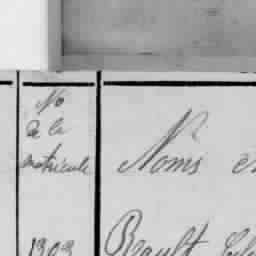 No
de la
matricule
Noms e
1303 Reault